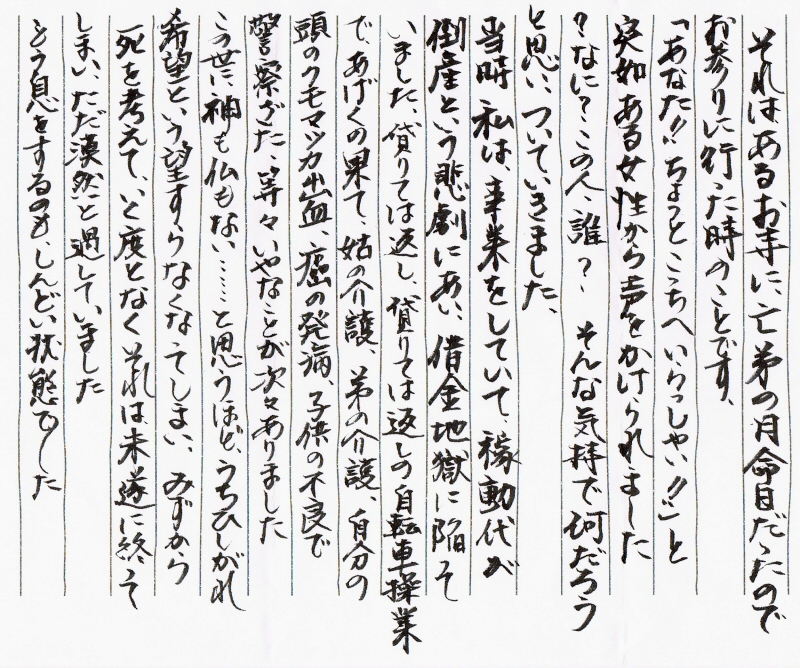 それはあるお寺に、亡弟の月命日だったので
お参りに行った時のことです、
「あなた!!ちょっとこっちへいらっしゃい!!」と
突如ある女性から声をかけられました
?なに?この人、誰?　そんな気持で何だろう
と思い、ついていきました、
当時 私は、事業をしていて、稼動代が
倒産という悲劇にあい、借金地獄に陥って
いました、貸りては返し、貸りては返しの自転車操業
で、あげくの果て、姑の介護、弟の介護、自分の
頭のクモマッカ出血、癌の発病、子供の不良で
警察ざた、等々いやなことが次々ありました
この世に神も仏もない……と思うほど、うちひしがれ
希望という望すらなくなてしまい、みずから
死を考えて、いく度となくそれは未遂に終って
しまい、ただ漠然と過していました
もう息をするのも、しんどい状態でした